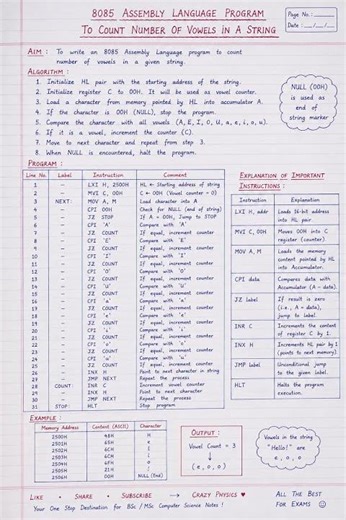 8085 ASSEMBLY LANGUAGE PROGRAM
TO COUNT NUMBER OF VOWELS IN A STRING
Page No.:
Date:
AIM : To write an 8085 Assembly Language program to count
number of vowels in a given string.
ALGORITHM :
1. Initialize HL pair with the starting address of the string.
2. Initialize register C to 00H. It will be used as vowel counter.
3. Load a character from memory pointed by HL into accumulator A.
4. If the character is 00H (NULL), stop the program.
5. Compare the character with all vowels (A, E, I, O, U, a, e, i, o, u).
6. If it is a vowel, increment the counter (C).
7. Move to next character and repeat from step 3.
8. When NULL is encountered, halt the program.
NULL (00H)
is used
as end of
string marker
PROGRAM :
Line No. Label Instruction Comment
1 – LXI H, 2500H HL ← Starting address of string
2 – MVI C, 00H C ← 00H (Vowel counter = 0)
3 NEXT: MOV A, M Load character into A
4 – CPI 00H Check for NULL (end of string)
5 – JZ STOP If A = 00H, Jump to STOP
6 – CPI 'A' Compare with 'A'
7 – JZ COUNT If equal, increment counter
8 – CPI 'E' Compare with 'E'
9 – JZ COUNT If equal, increment counter
10 – CPI 'I' Compare with 'I'
11 – JZ COUNT If equal, increment counter
12 – CPI 'O' Compare with 'O'
13 – JZ COUNT If equal, increment counter
14 – CPI 'U' Compare with 'U'
15 – JZ COUNT If equal, increment counter
16 – CPI 'a' Compare with 'a'
17 – JZ COUNT If equal, increment counter
18 – CPI 'e' Compare with 'e'
19 – JZ COUNT If equal, increment counter
20 – CPI 'i' Compare with 'i'
21 – JZ COUNT If equal, increment counter
22 – CPI 'o' Compare with 'o'
23 – JZ COUNT If equal, increment counter
24 – CPI 'u' Compare with 'u'
25 – JZ COUNT If equal, increment counter
26 – INX H Point to next character in string
27 – JMP NEXT Repeat the process
28 COUNT: INR C Increment vowel counter
29 – INX H Point to next character
30 – JMP NEXT Repeat the process
31 STOP: HLT Stop program
EXPLANATION OF IMPORTANT
INSTRUCTIONS :
Instruction Explanation
LXI H, addr Loads 16-bit address
into HL pair.
MVI C, 00H Moves 00H into C
register (counter).
MOV A, M Loads the memory
content pointed by HL
into Accumulator.
CPI data Compares data with
Accumulator (A - data).
JZ label If result is zero
(i.e., A = data),
jump to label.
INR C Increments the content
of register C by 1.
INX H Increments HL pair by 1
(points to next memory).
JMP label Unconditional jump
to the given label.
HLT Halts the program
execution.
EXAMPLE :
Memory Address Content (ASCII) Character
2500H 48H H
2501H 65H
2502H 6CH
2503H 6CH
2504H 6FH
2505H 21H !
2506H 00H NULL (End)
OUTPUT :
Vowel Count = 3
(e, o, o)
Vowels in the string
"Hello!" are
e, o, o
LIKE • SHARE • SUBSCRIBE → CRAZY PHYSICS ♥
Your One Stop Destination for BSc / MSc Computer Science Notes !
ALL THE BEST
FOR EXAMS ☺